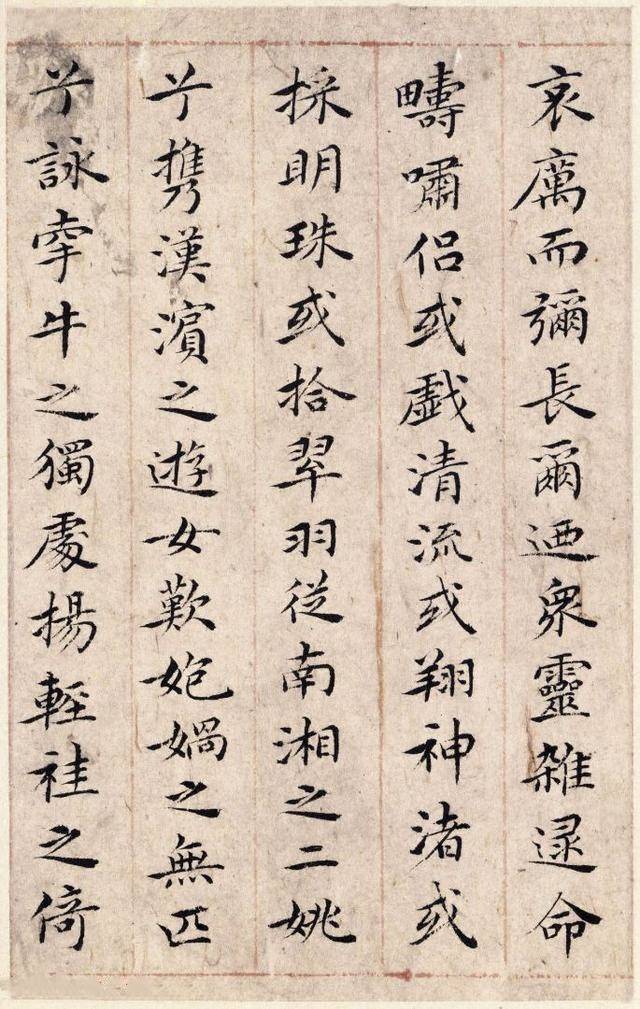 哀厲而彌長爾迺衆靈雜遝命
疇嘯侣或戯清流或翔神渚或
採明珠或拾翠羽從南湘之二姚
兮攜漢濱之遊女歎匏媧之無匹
兮詠牽牛之獨處揚輕袿之倚